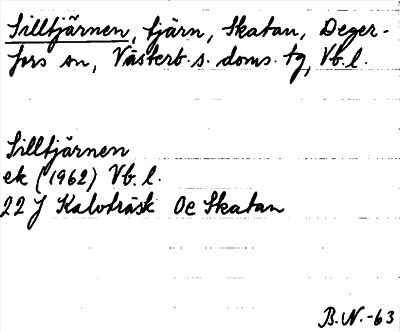 Silltjärnen, tjärn, Skatan, Deger-
fors sn, Västerb. s. doms. tg, Vb. l.
Silltjärnen
ek (1962) Vb. l.
22 J Kalvträsk 0c Skatan
B.N.-63